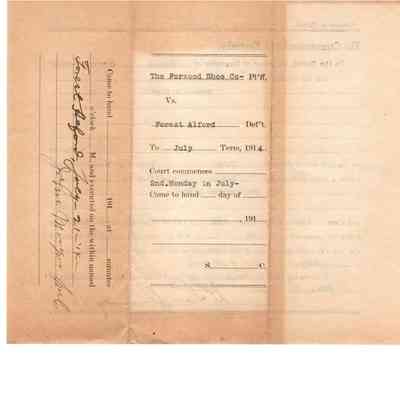 The Forwood Shoe Co- Pl'ff.
Vs.
Forest Alford Def't.
To July Term, 1914
Court commences
2nd. Monday in July-
Came to hand day of
191
S. C.
Came to hand 191 at minutes
o'clock M., and executed on the within named
Forest Alford July 21-14